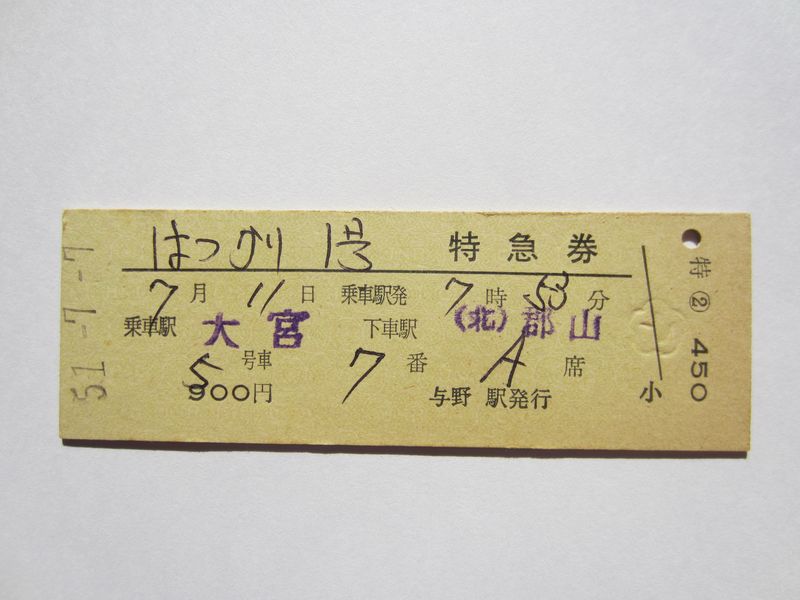 はつかり 1号 特急券
7月11日 乗車駅発 7時53分
乗車駅 大宮 下車駅 (北)郡山
5号車 7番 A席
900円 与野駅発行
小
特② 450
51-7-7